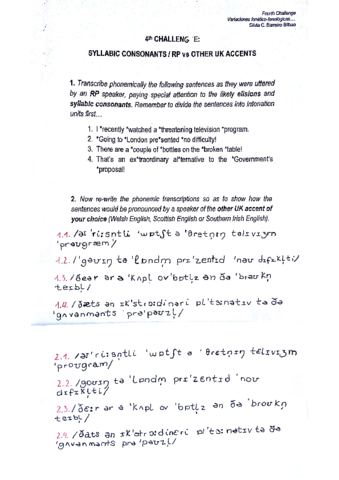 Fourth Challenge
Variaciones fonético-fonológicas…
Silvia C. Barreiro Bilbao
4th CHALLENGE:
SYLLABIC CONSONANTS / RP vs OTHER UK ACCENTS
1. Transcribe phonemically the following sentences as they were uttered
by an RP speaker, paying special attention to the likely elisions and
syllabic consonants. Remember to divide the sentences into intonation
units first…
1. I *recently *watched a *threatening television *program.
2. *Going to *London pre*sented *no difficulty!
3. There are a *couple of *bottles on the *broken *table!
4. That's an ex*traordinary al*ternative to the *Government's
*proposal!
2. Now re-write the phonemic transcriptions so as to show how the
sentences would be pronounced by a speaker of the other UK accent of
your choice (Welsh English, Scottish English or Southern Irish English).
1.1. /aɪ ˈriːsn̩tli ˈwɒtʃt ə ˈθretn̩ɪŋ telɪvɪʒm
ˈprəʊɡræm/
1.2. /ˈɡəʊɪŋ tə ˈlʌndn̩ prɪˈzentɪd ˈnəʊ dɪfɪkl̩ti/
1.3. /ðeər ər ə ˈkʌpl̩ əv ˈbɒtl̩z ən ðə ˈbrəʊkn̩
teɪbl̩/
1.4. /ðæts ən ɪkˈstrɔːdɪnəri ɒlˈtɜːnətɪv tə ðə
ˈɡʌvənmənts prəˈpəʊzl̩/
2.1. /aɪ ˈriːsn̩tli ˈwɒtʃt ə ˈθretn̩ɪŋ telɪvɪʒm
ˈproʊɡram/
2.2. /ɡoʊɪŋ tə ˈlʌndn̩ prɪˈzentɪd ˈnoʊ
dɪfɪkl̩ti/
2.3. /ðeːr ər ə ˈkʌpl̩ əv ˈbɒtl̩z ən ðə ˈbroʊkn̩
teɪbl̩/
2.4. /ðats ən ɪkˈstrɔːdɪneri ɒlˈtɜːnətɪv tə ðə
ɡʌvənmənts prəˈpoʊzl̩/